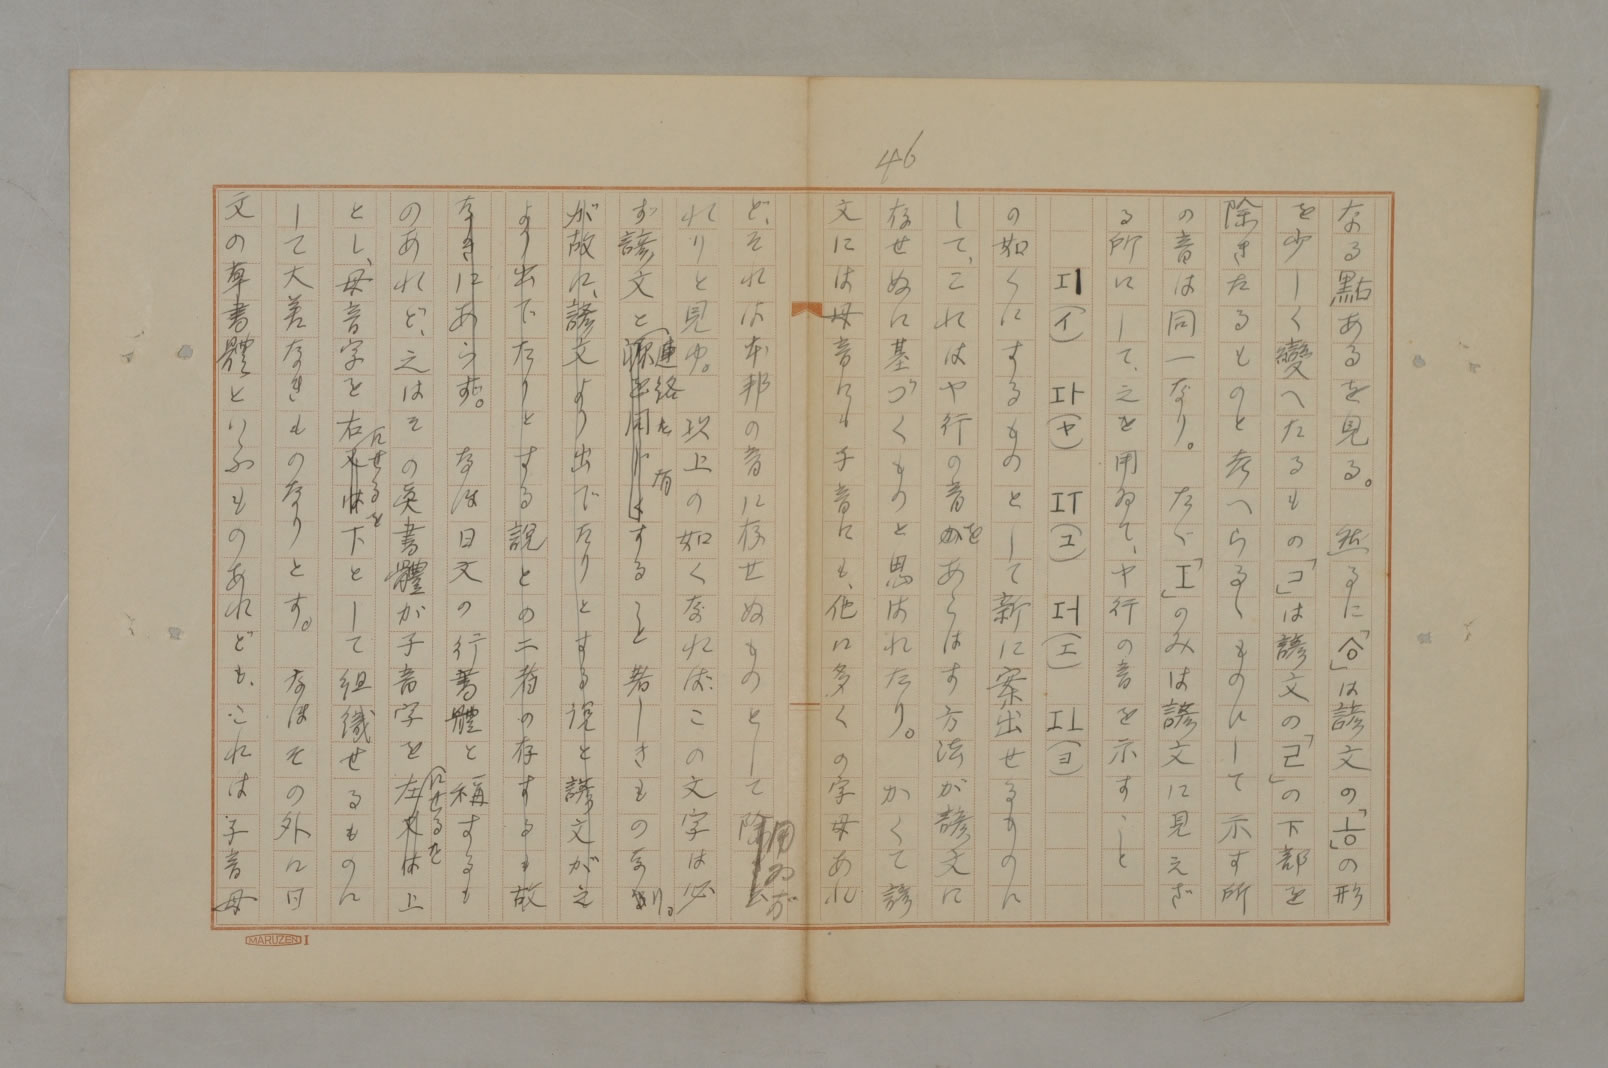 46
なる點あるを見る。然るに「숑」は諺文の「ㅎ」の形
を少しく變へたるもの「コ」は諺文の「ㄹ」の下部を
除きたるものと考へらるゝものにして示す所
の音は同一なり。たゞ「エ」のみは諺文に見えざ
る所にして、之を用ゐて、ヤ行の音を示すこと
エl(イ) エト(ヤ) エT(ユ) エH(エ) エL(ヨ)
の如くにするものとして新に案出せるものに
して、これはヤ行の音をあらはす方法が諺文に
存せぬに基づくものと思はれたり。かくて諺
文には母音にも子音にも、他に多くの字母あれ
ど、それは本邦の音に存せぬものとして用ゐざ
れりと見ゆ。以上の如くなれば、この文字は必
ず諺文と連絡を有すること著しきものなり。
が故に、諺文より出でたりとする説と諺文が之
より出でたりとする説との二者の存するも故
なきにあらず。なほ日文の行書體と稱するも
のあれど、之はその眞書體が子音字を左にせるを上
とし、母音字を右にせるを下として組織せるものに
して大差なきものなりとす。なほその外に日
文の草書體といふものあれども、これは子音母
MARUZEN I